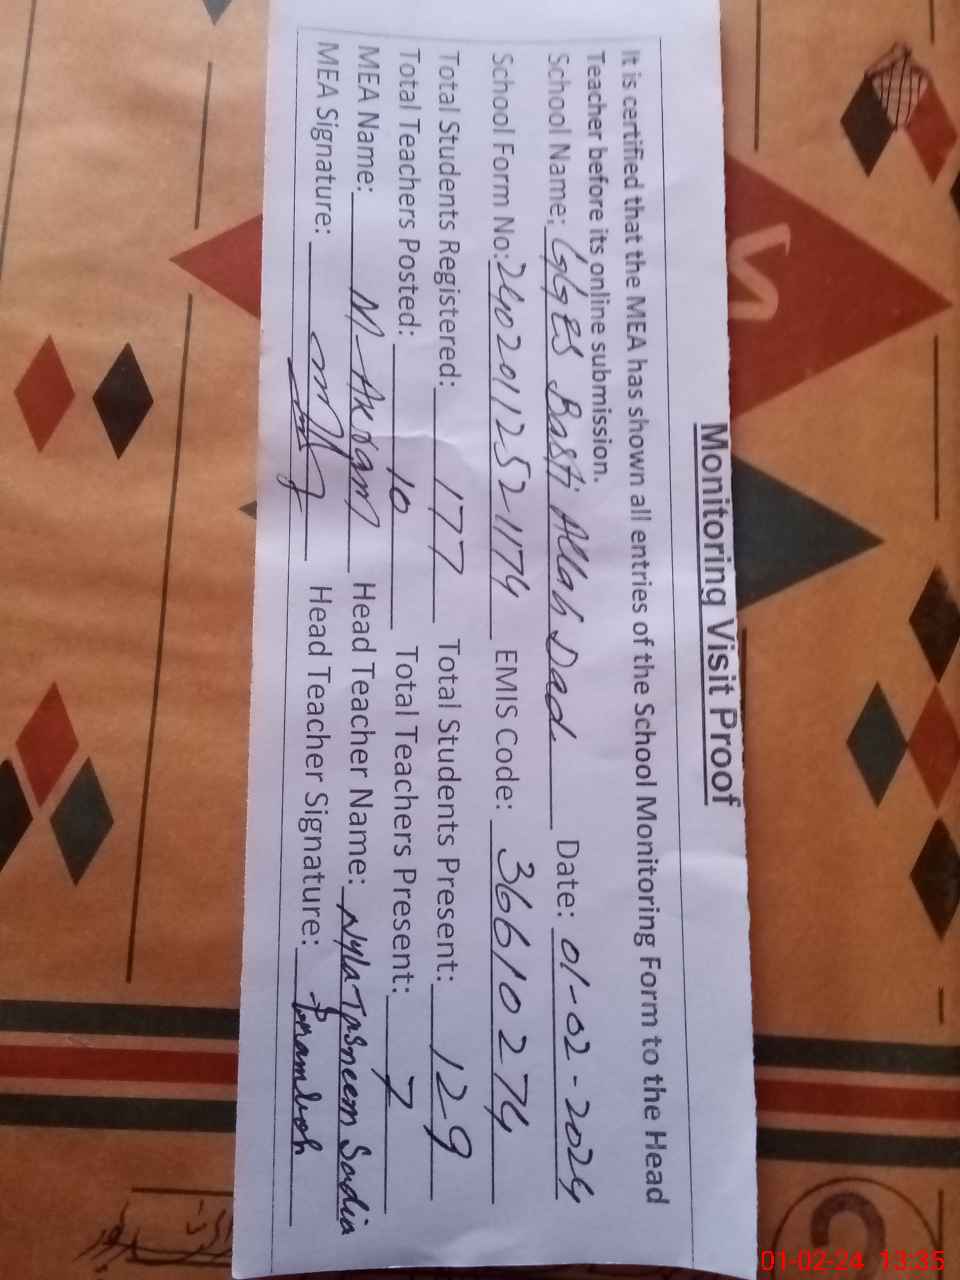 Monitoring Visit Proof
It is certified that the MEA has shown all entries of the School Monitoring Form to the Head
Teacher before its online submission.
School Name: GGES Basti Allah Dad. Date: 01-02-2024
School Form No: 2402011252-1174 EMIS Code: 36610274
Total Students Registered: 177 Total Students Present: 129
Total Teachers Posted: 10 Total Teachers Present: 7
MEA Name: M-Akram Head Teacher Name: Nyla Tasneem Sadia
MEA Signature: Head Teacher Signature:
C
01-02-24 13:35